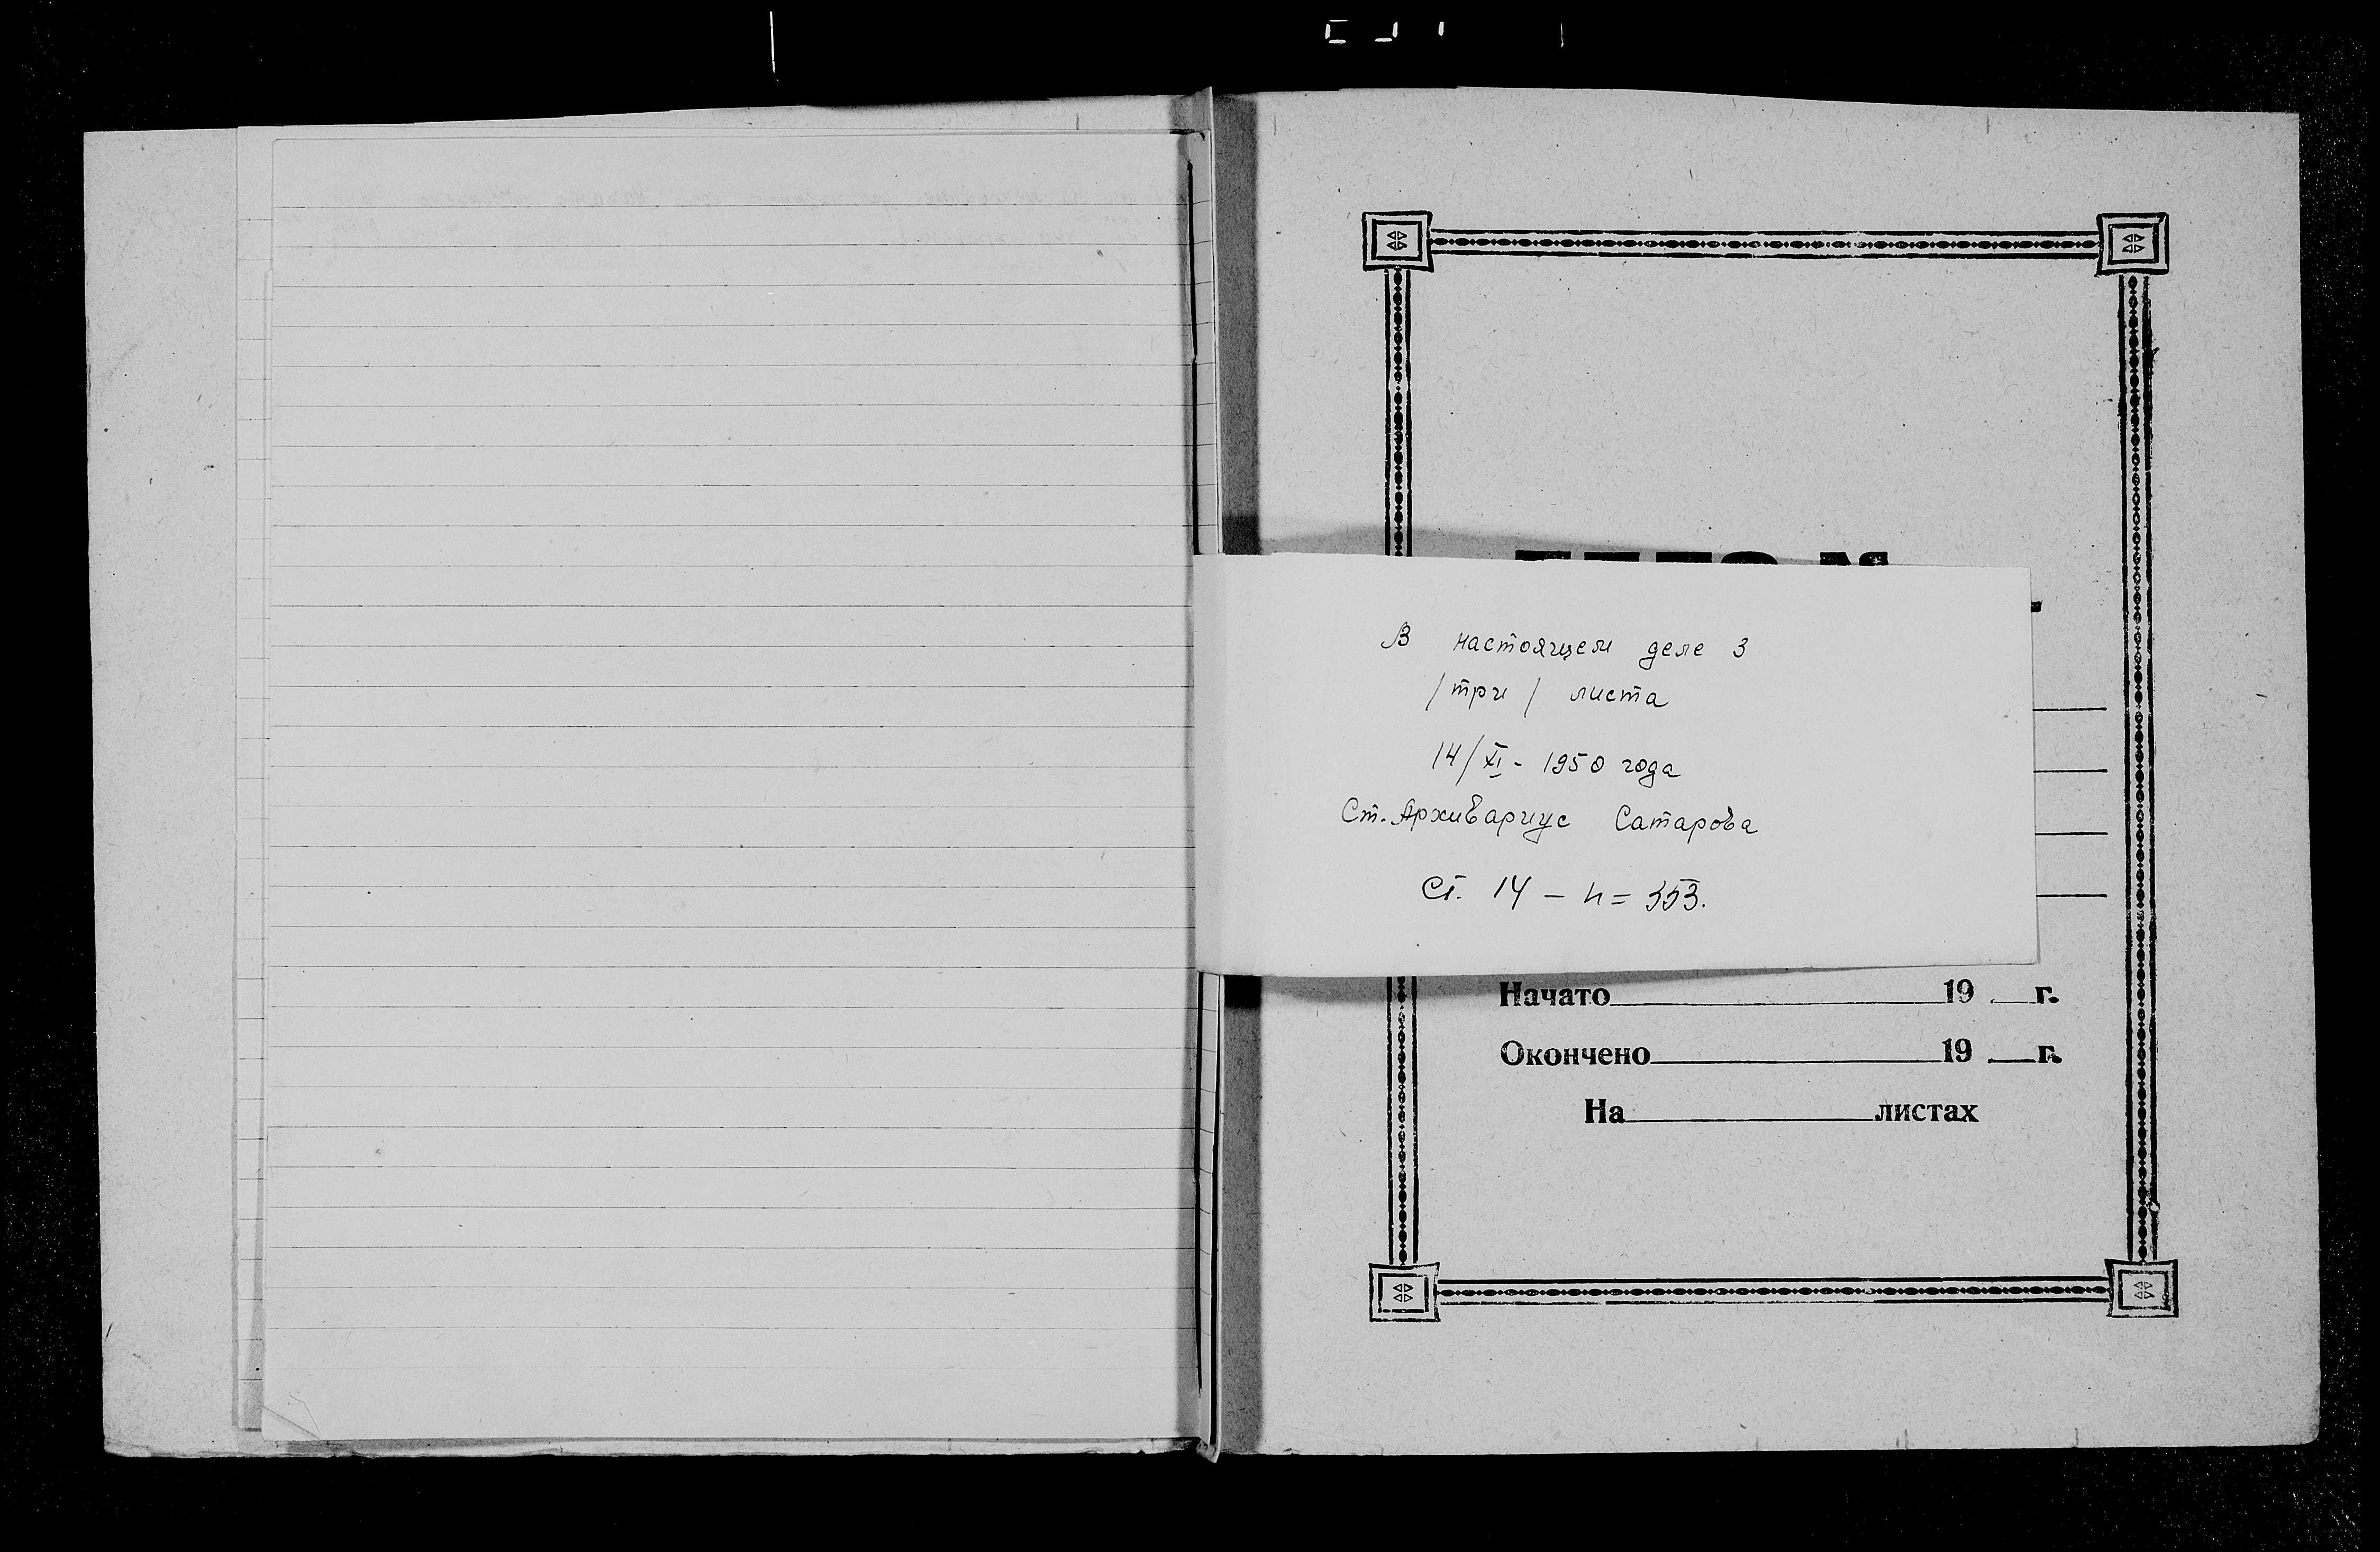 В настоящем деле 3
/три/ листа
14/XI - 1950 года
Ст. Архивариус Сатарова
Ст. 14 – н = 353.
Начато 19 г.
Окончено 19 г.
На листах